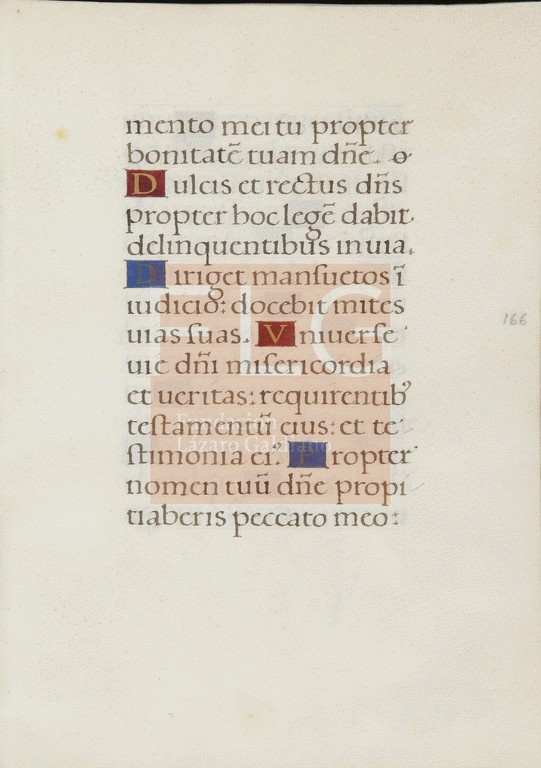 mento mei tu propter
bonitatē tuam dn̄e.
Dulcis et rectus dn̄s
propter hoc legē dabit
delinquentibus in uia.
Diriget mansuetos ī
iudicio: docebit mites
uias suas. Vniuerse
uie dn̄i misericordia
et ueritas: requirentibꝰ
testamentū eius: et te
stimonia eiꝰ. Propter
nomen tuū dn̄e propi
tiaberis peccato meo:
166
FLG
Fundación
Lázaro Galdiano